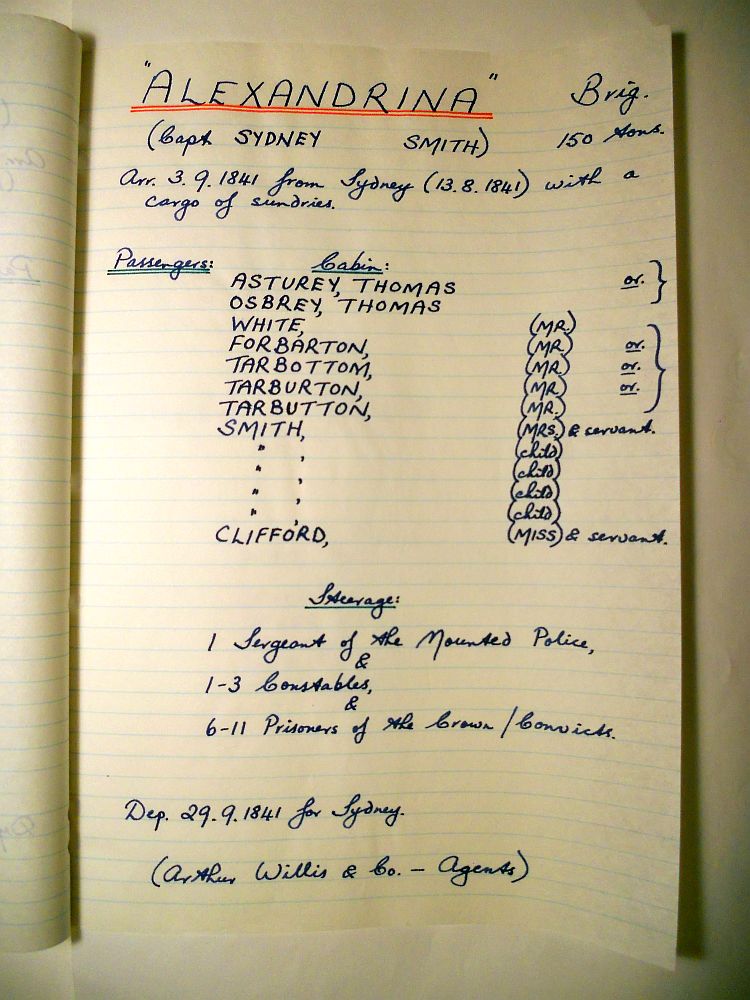 "ALEXANDRINA" Brig.
(Capt SYDNEY SMITH) 150 tons.
Arr. 3.9.1841 from Sydney (13.8.1841) with a
cargo of sundries.
Passengers: Cabin:
ASTUREY, THOMAS or. }
OSBREY, THOMAS
WHITE, (MR.)
FORBARTON, (MR.) or. }
TARBOTTOM, (MR.) or.
TARBURTON, (MR.) or.
TARBUTTON, (MR.)
SMITH, (MRS.) & servant.
" , (child)
" , (child)
" , (child)
" , (child)
CLIFFORD, (MISS) & servant.
Steerage:
1 Sergeant of the Mounted Police,
&
1-3 Constables,
&
6-11 Prisoners of the Crown / Convicts.
Dep. 29.9.1841 for Sydney.
(Arthur Willis & Co. - Agents)